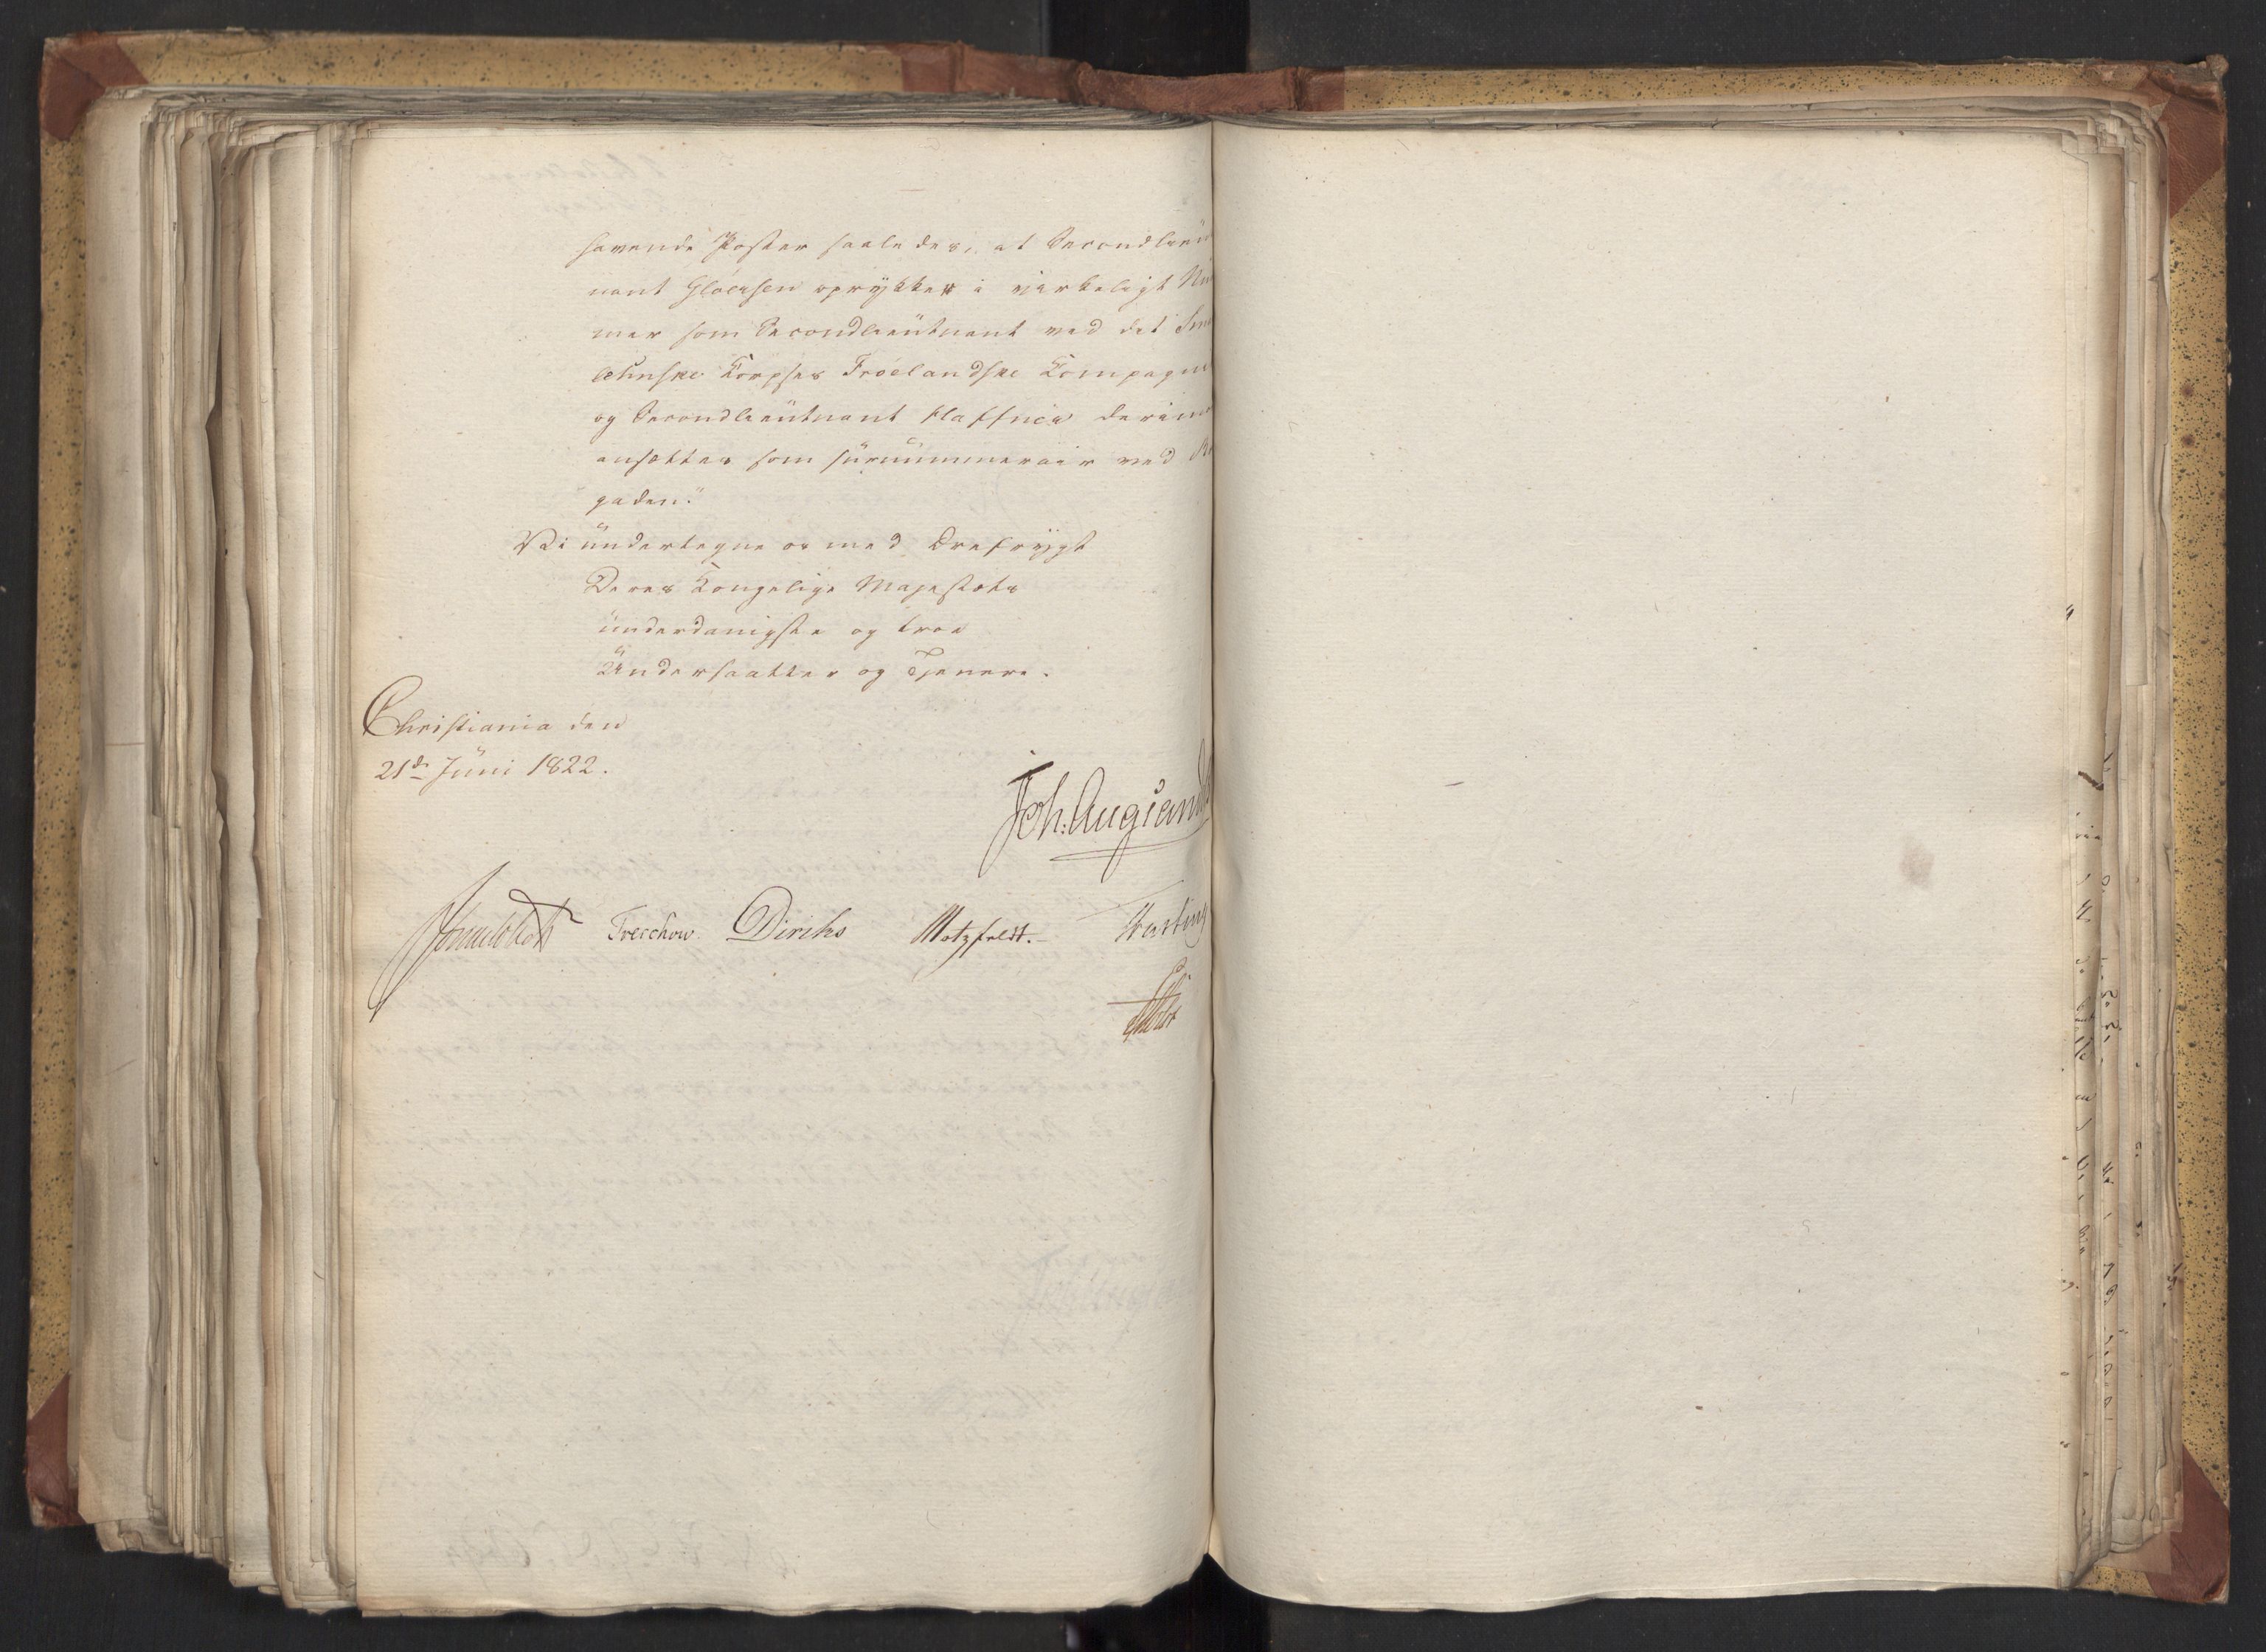 havende Poster saaledes, at Secondlieu
nant Gløersen oprykker i virkeligt Nu
mer som Secondlieutnant ved det Sma
lehnske Korpses Trøelandske Kompagni
og Secondlieutnant Klaffner derimo
ansættes som surnummerair ved Bri
gaden."
Vi undertegne os med Ærefrygt
Deres Kongelige Majestæts
underdanigste og troe
Undersaatter og Tjenere.
Christiania den
21de Juni 1822.
Joh: Aug: Sand
Sommerhielm Treschow Diriks Motzfeldt. Krefting